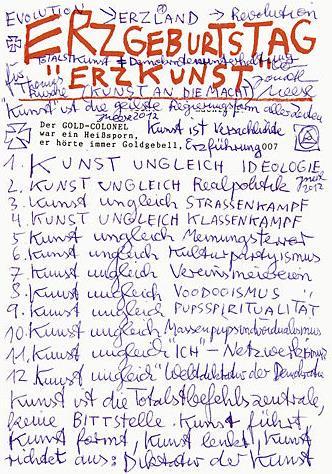 EVOLUTION → ERZLAND → Revolution
ERZGEBURTSTAG
TOTALSTKUNST = Demokratenunterhaltung
"ERZKUNST"
für Thomas
KUNST AN DIE MACHT
Meese
"Kunst" ist die geilste Regierungsform aller Zeiten
Meese 2012
Der GOLD-COLONEL
war ein Heißsporn,
er hörte immer Goldgebell,
Kunst ist Verschließe
Erzführung007
1. KUNST UNGLEICH IDEOLOGIE
2. KUNST UNGLEICH Realpolitik
Meese 2012
3. Kunst ungleich STRASSENKAMPF
4. KUNST UNGLEICH KLASSENKAMPF
5 Kunst ungleich Meinungsterror
6. Kunst ungleich Kulturpartyismus
7 Kunst ungleich Vereinsmeiereien
8. Kunst ungleich VOODOOISMUS
9. Kunst ungleich PUPSSPIRITUALITÄT
10. Kunst ungleich Massenpupsindividualismus
11. Kunst ungleich "ICH"-Netzwerkismus
12 Kunst ungleich "Weltdiktatur der Demokratie
Kunst ist die Totalstbefehlszentrale,
keine BITTSTELLE. Kunst führt,
Kunst formt, Kunst lenkt, Kunst
richtet aus: Diktatur der Kunst